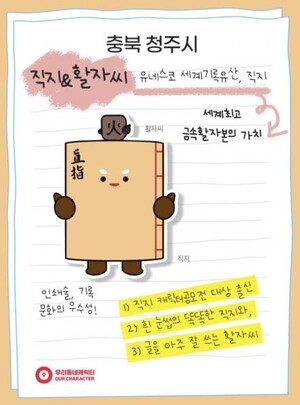 충북 청주시
직지&활자씨
유네스코 세계기록유산, 직지
세계최고
금속활자본의 가치
火
활자씨
直指
직지
인쇄술, 기록
문화의 우수성!
1) 직지 캐릭터공모전 대상 출신
2) 흰 눈썹의 똑똑한 직지와,
3) 글을 아주 잘 쓰는 활자씨
우리동네캐릭터
OUR CHARACTER